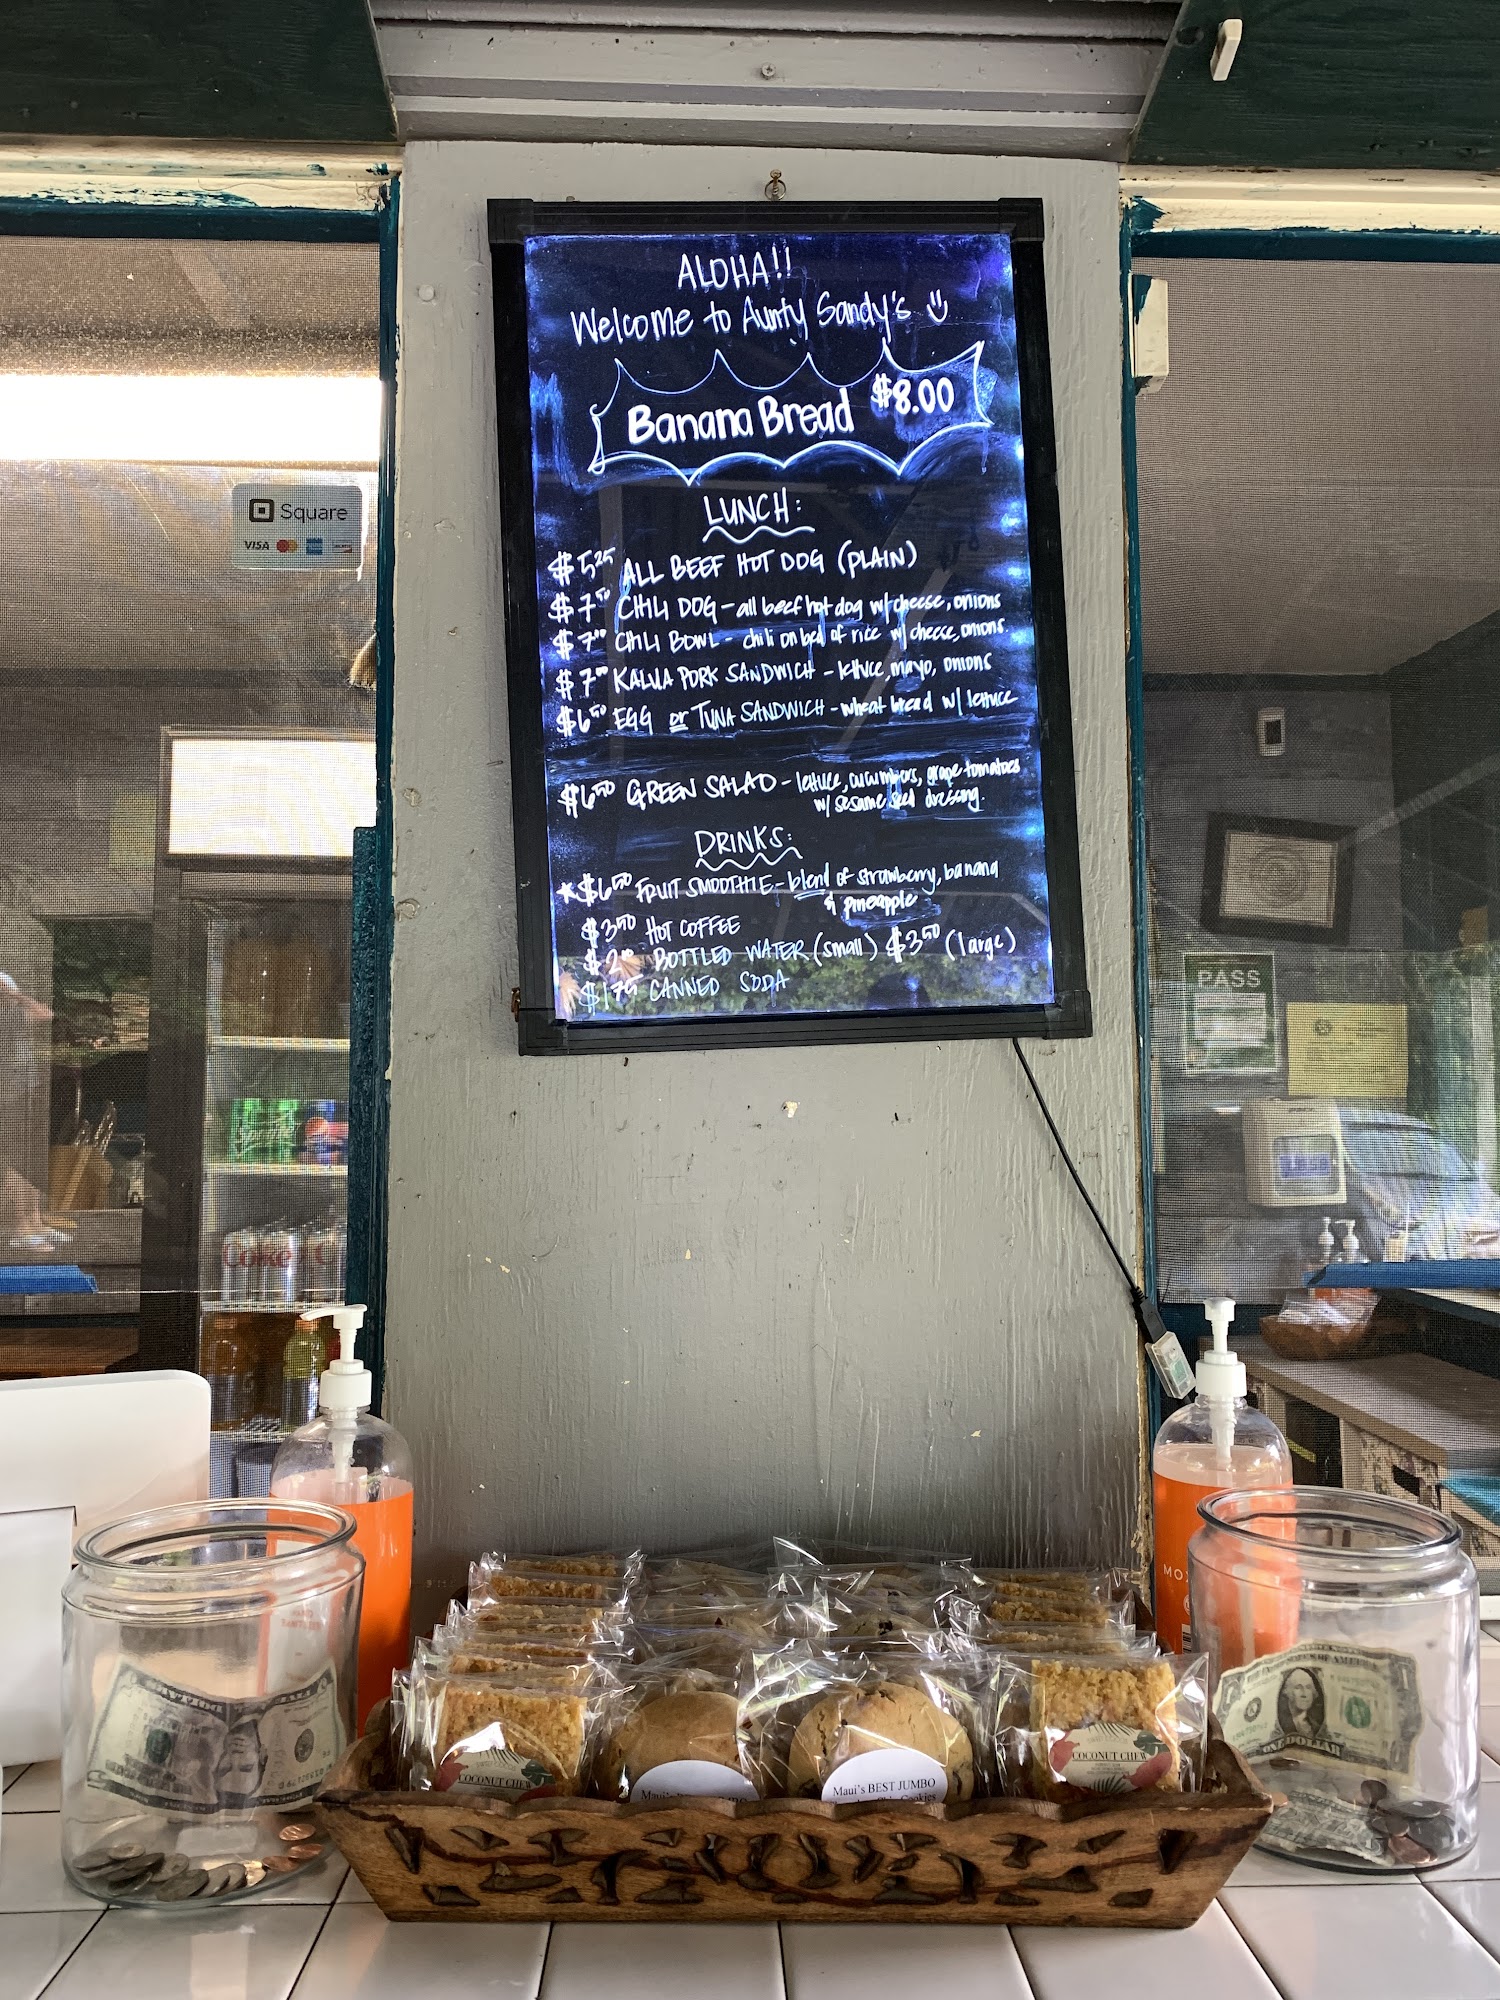 ALOHA!!
Welcome to Aunty Sandy's
Banana Bread $8.00
LUNCH:
$5.25 ALL BEEF HOT DOG (PLAIN)
$7.50 CHILI DOG - all beef hot dog w/ cheese, onions
$7.00 CHILI BOWL - chili on bed of rice w/ cheese, onions.
$7.00 KALUA PORK SANDWICH - lettuce, mayo, onions
$6.50 EGG or TUNA SANDWICH - wheat bread w/ lettuce
$6.50 GREEN SALAD - lettuce, cucumbers, grape tomatoes
w/ sesame seed dressing.
DRINKS:
*$6.50 FRUIT SMOOTHIE - blend of strawberry, banana
& pineapple
$3.50 HOT COFFEE
$2.00 BOTTLED WATER (small) $3.50 (large)
$1.75 CANNED SODA
Square
VISA
PASS
Sprite
Coke
COCONUT CHEW
Maui's BEST JUMBO
Cookies
COCONUT CHEW
ONE DOLLAR